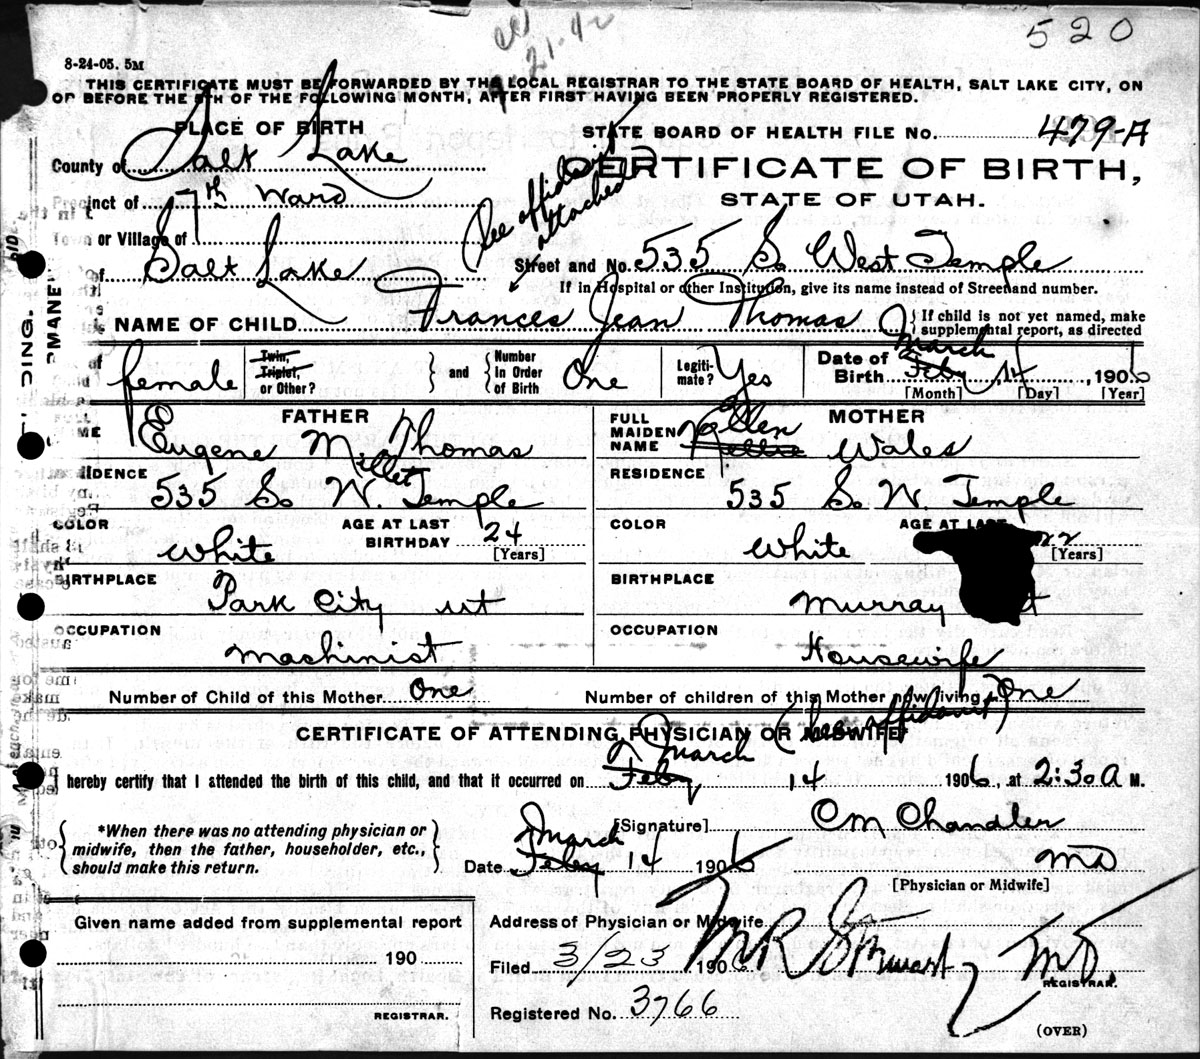 520
21-42
8-24-05. 5M
THIS CERTIFICATE MUST BE FORWARDED BY THE LOCAL REGISTRAR TO THE STATE BOARD OF HEALTH, SALT LAKE CITY, ON
OR BEFORE THE 5TH OF THE FOLLOWING MONTH, AFTER FIRST HAVING BEEN PROPERLY REGISTERED.
PLACE OF BIRTH
STATE BOARD OF HEALTH FILE No. 479-A
County of Salt Lake
CERTIFICATE OF BIRTH,
Precinct of 7th Ward
See affidavit attached
STATE OF UTAH.
Town or Village of
of Salt Lake
Street and No. 535 So. West Temple
If in Hospital or other Institution, give its name instead of Street and number.
NAME OF CHILD Frances Jean Thomas
{ If child is not yet named, make supplemental report, as directed
female
Twin, Triplet, or Other?
and
Number In Order of Birth One
Legitimate? Yes
Date of Birth March Feby 14, 1906
[Month] [Day] [Year]
FATHER
FULL MAIDEN NAME
MOTHER
ME Eugene M Thomas
Millet
Nellie Wales
RESIDENCE
IDENCE
535 So. W. Temple
535 So. W. Temple
COLOR White
AGE AT LAST BIRTHDAY 24 [Years]
COLOR White
AGE AT LAST 22 [Years]
BIRTHPLACE Park City ut
BIRTHPLACE Murray
OCCUPATION Mashinist
OCCUPATION Housewife
Number of Child of this Mother One
Number of children of this Mother now living One
(See affidavit)
CERTIFICATE OF ATTENDING PHYSICIAN OR MIDWIFE
March
I hereby certify that I attended the birth of this child, and that it occurred on Feby 14 1906, at 2:30 A M.
*When there was no attending physician or
midwife, then the father, householder, etc.,
should make this return.
[Signature] CM Chandler
March
Date Feby 14 1906
MD
[Physician or Midwife]
Given name added from supplemental report
Address of Physician or Midwife
190
Filed 3/23 1906
M R Stewart MD.
REGISTRAR.
REGISTRAR.
Registered No. 3766
(OVER)